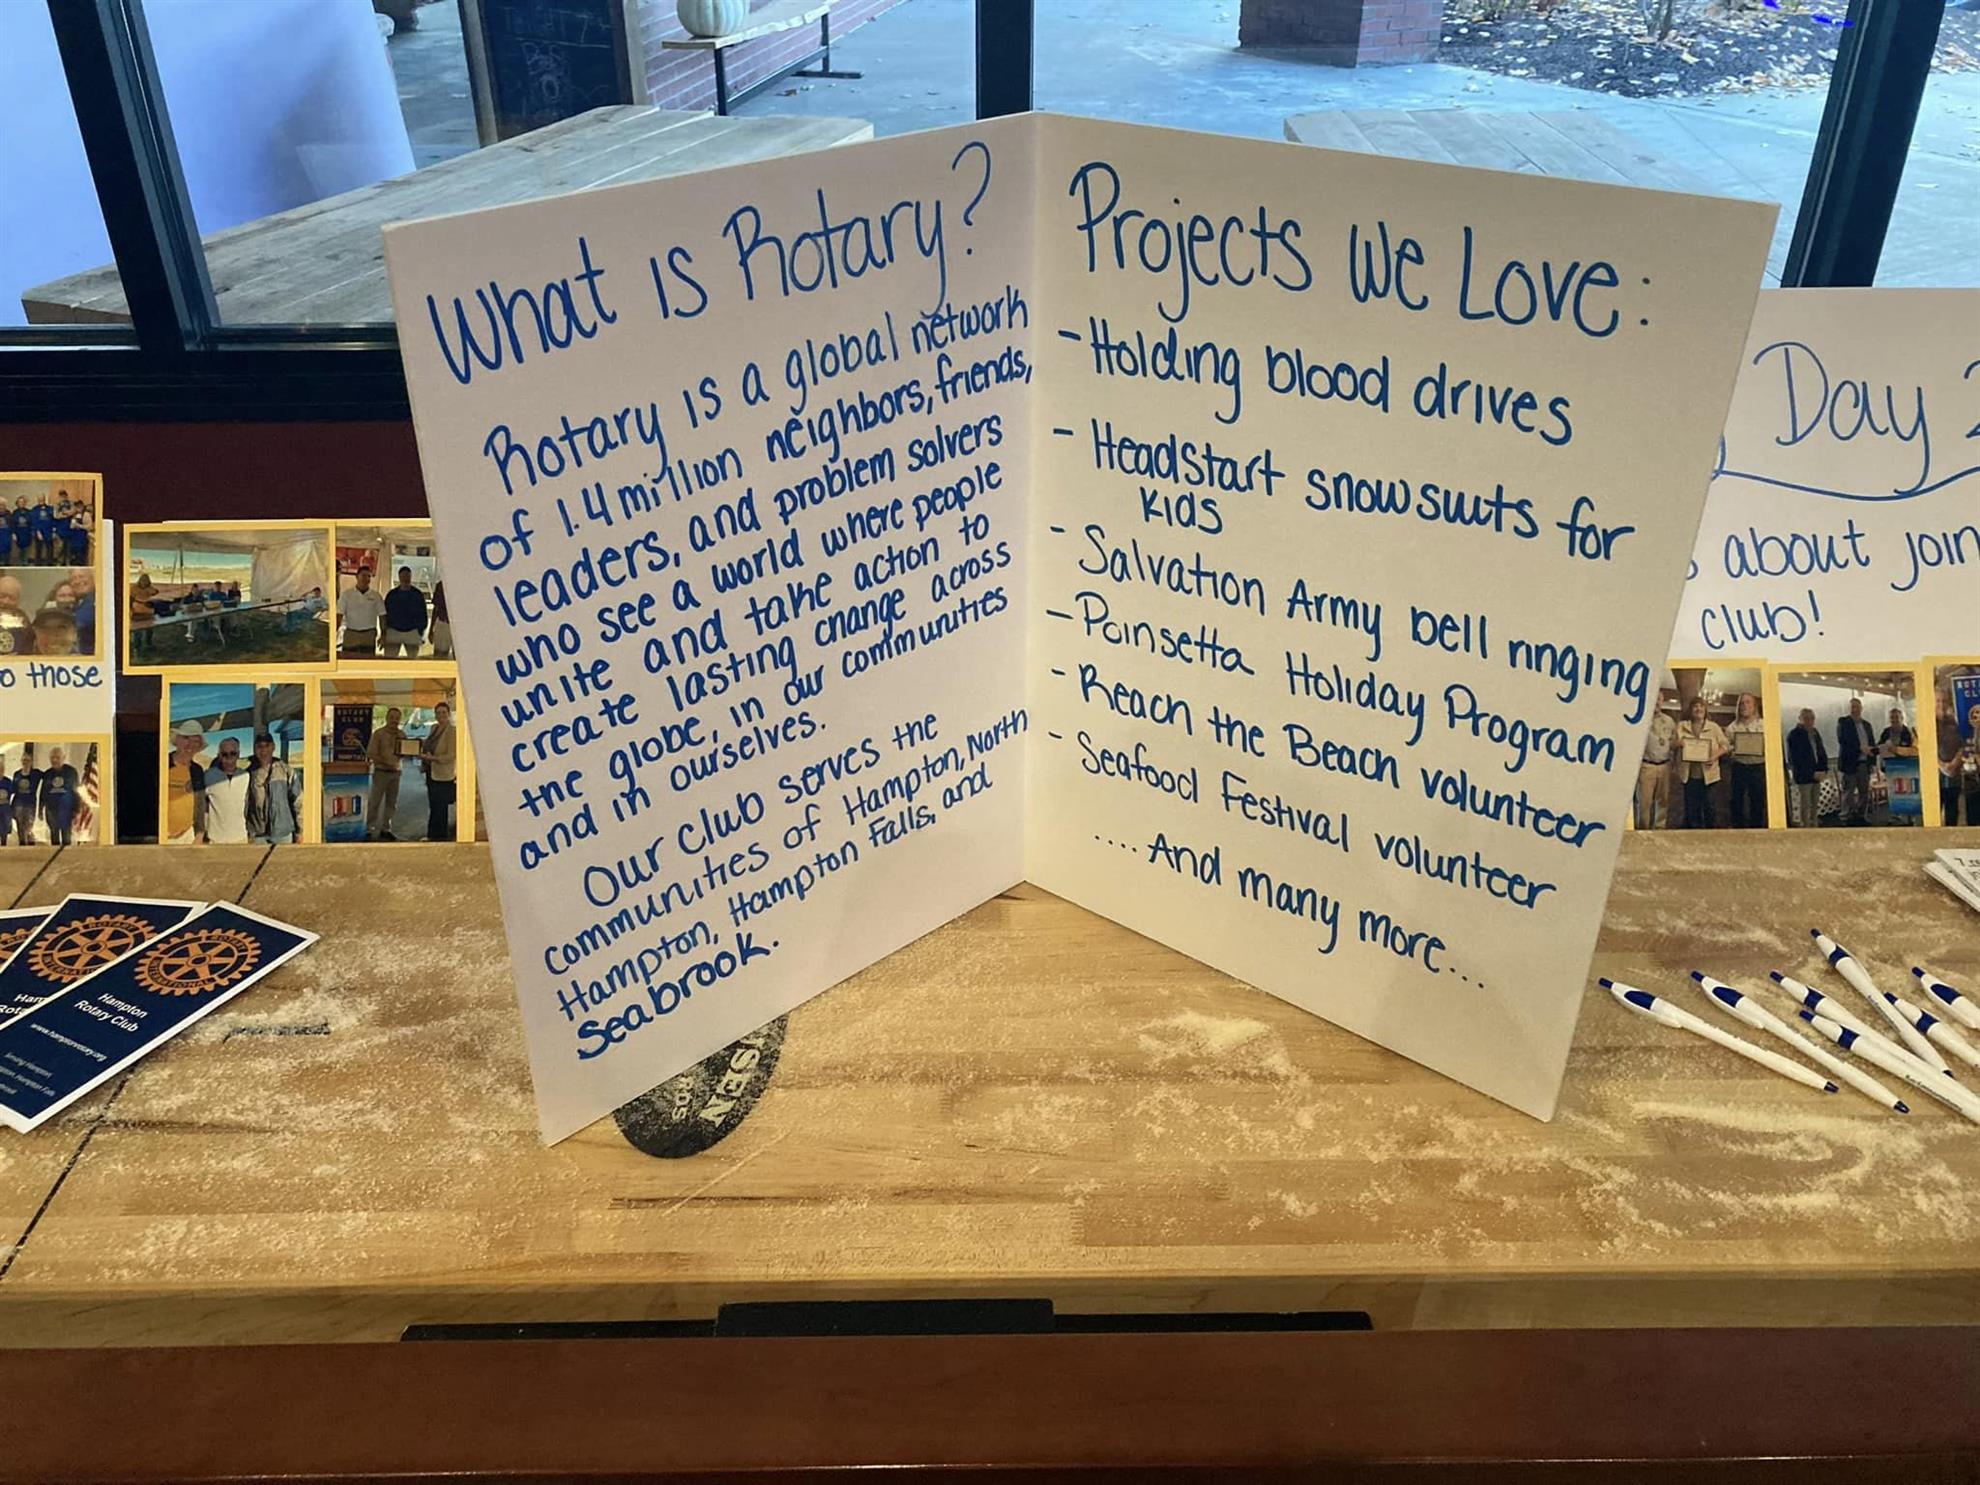 What is Rotary?
Rotary is a global network
of 1.4 million neighbors, friends,
leaders, and problem solvers
who see a world where people
unite and take action to
create lasting change across
the globe, in our communities
and in ourselves.
Our club serves the
communities of Hampton, North
Hampton, Hampton Falls, and
Seabrook.
Projects We Love:
- Holding blood drives
- Headstart snowsuits for
kids
- Salvation Army bell ringing
- Poinsetta Holiday Program
- Reach the Beach volunteer
- Seafood Festival volunteer
.... And many more...
Day 2
about join
club!
o those
ROTARY
INTERNATIONAL
Hampton
Rotary Club
www.hamptonrotary.org
SEN